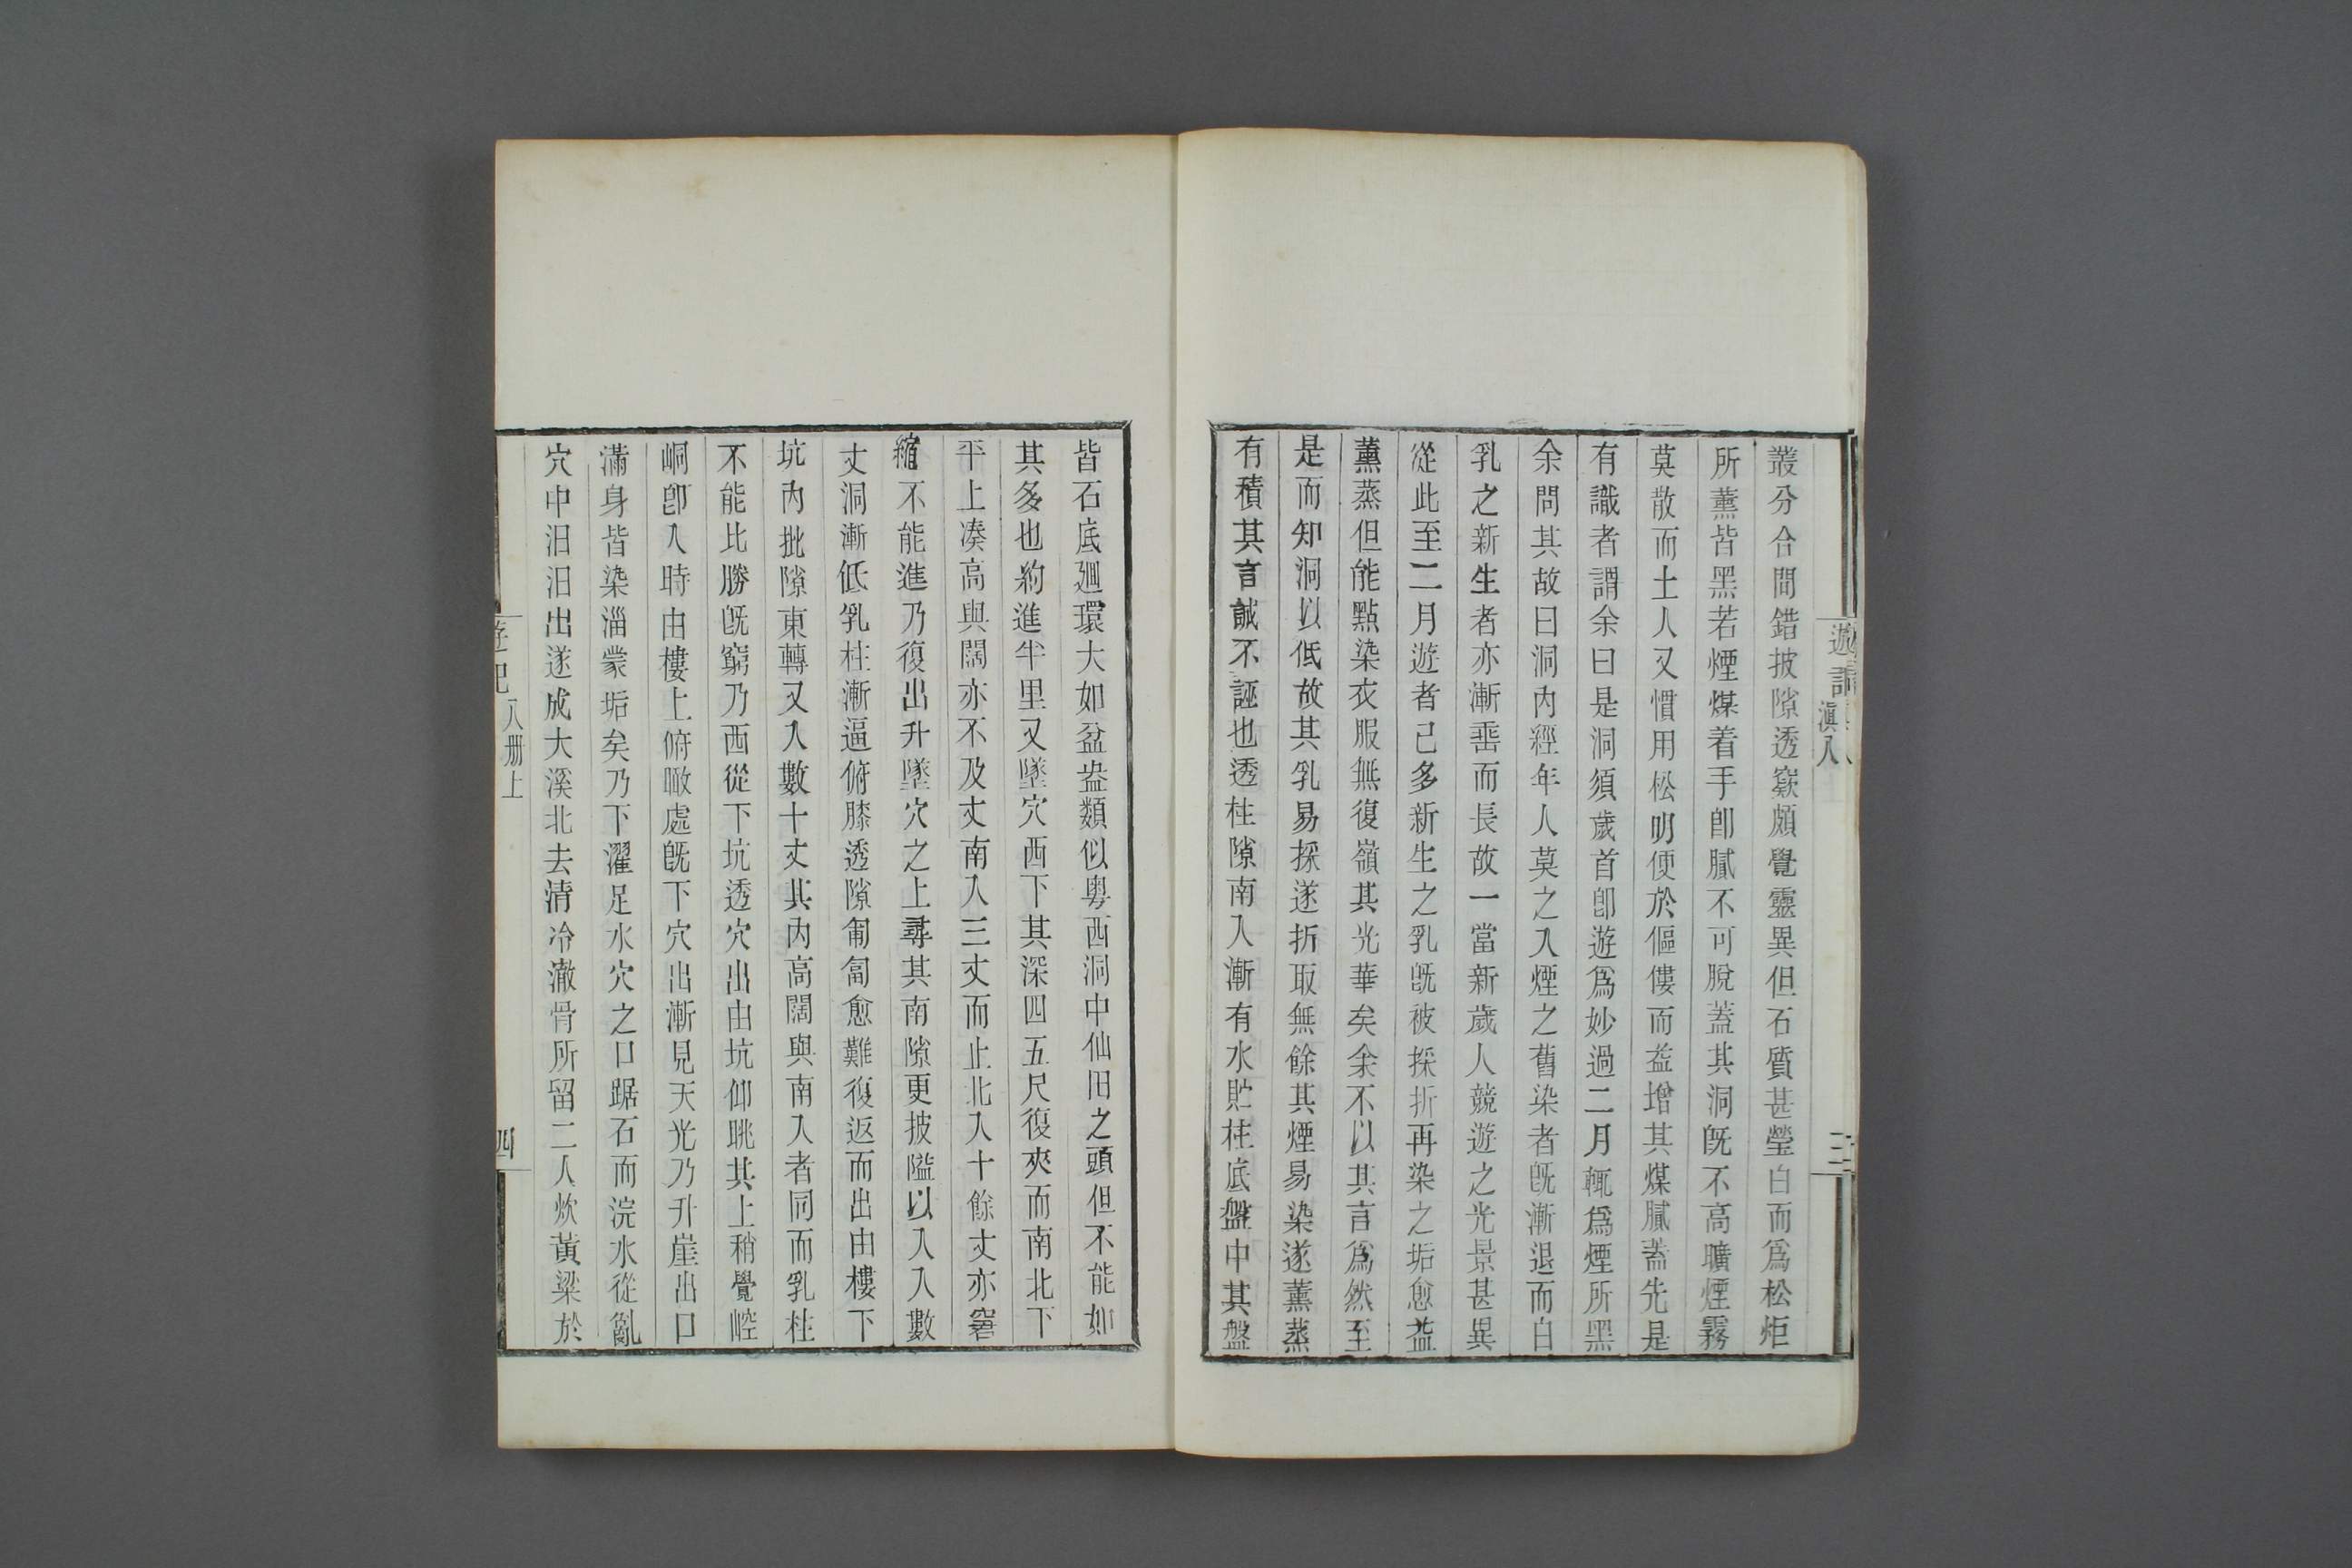 遊記
滇八
三
叢分合間錯披隙透窾頗覺靈異但石質甚瑩白而爲松炬
所薰皆黑若煙煤着手卽膩不可脫蓋其洞旣不高曠煙霧
莫散而土人又慣用松明便於傴僂而益增其煤膩蓋先是
有識者謂余曰是洞須歲首卽遊爲妙過二月輒爲煙所黑
余問其故曰洞內經年人莫之入煙之舊染者旣漸退而白
乳之新生者亦漸垂而長故一當新歲人競遊之光景甚異
從此至二月遊者已多新生之乳旣被採折再染之垢愈益
薰蒸但能點染衣服無復嶺其光華矣余不以其言爲然至
是而知洞以低故其乳易採遂折取無餘其煙易染遂薰蒸
有積其言誠不誣也透柱隙南入漸有水貯柱底盤中其盤
皆石底廻環大如盆盎類似粵西洞中仙田之頭但不能如
其多也約進半里又墜穴西下其深四五尺復夾而南北下
平上湊高與闊亦不及丈南入三丈而止北入十餘丈亦窘
縮不能進乃復出升墜穴之上尋其南隙更披隘以入入數
丈洞漸低乳柱漸逼俯膝透隙匍匐愈難復返而出由樓下
坑內批隙東轉又入數十丈其內高闊與南入者同而乳柱
不能比勝旣窮乃西從下坑透穴出由坑仰眺其上稍覺崆
峒卽入時由樓上俯瞰處旣下穴出漸見天光乃升崖出口
滿身皆染淄蒙垢矣乃下濯足水穴之口踞石而浣水從亂
穴中汩汩出遂成大溪北去清冷澈骨所留二人炊黃粱於
遊記
八册上
四